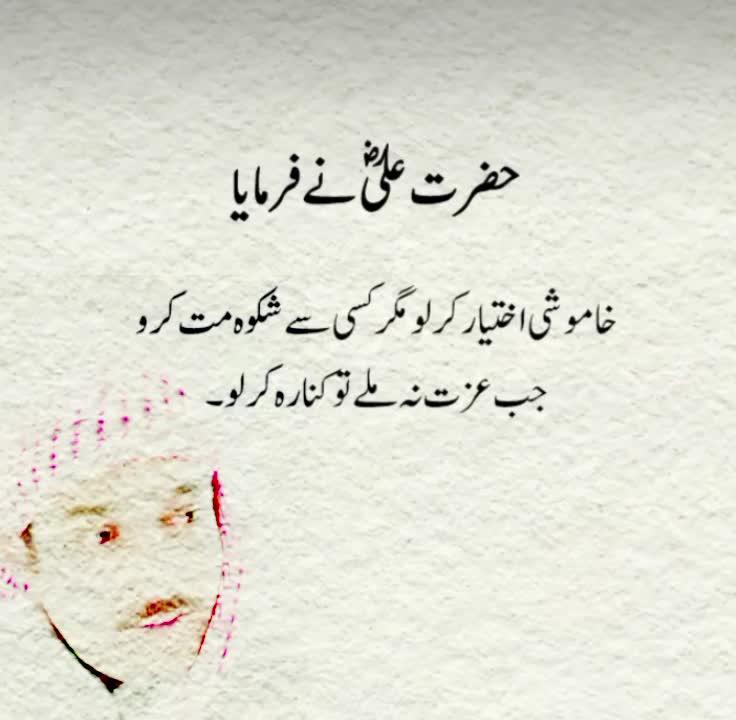 حضرت علیؓ نے فرمایا
خاموشی اختیار کر لو مگر کسی سے شکوہ مت کرو
جب عزت نہ ملے تو کنارہ کر لو۔